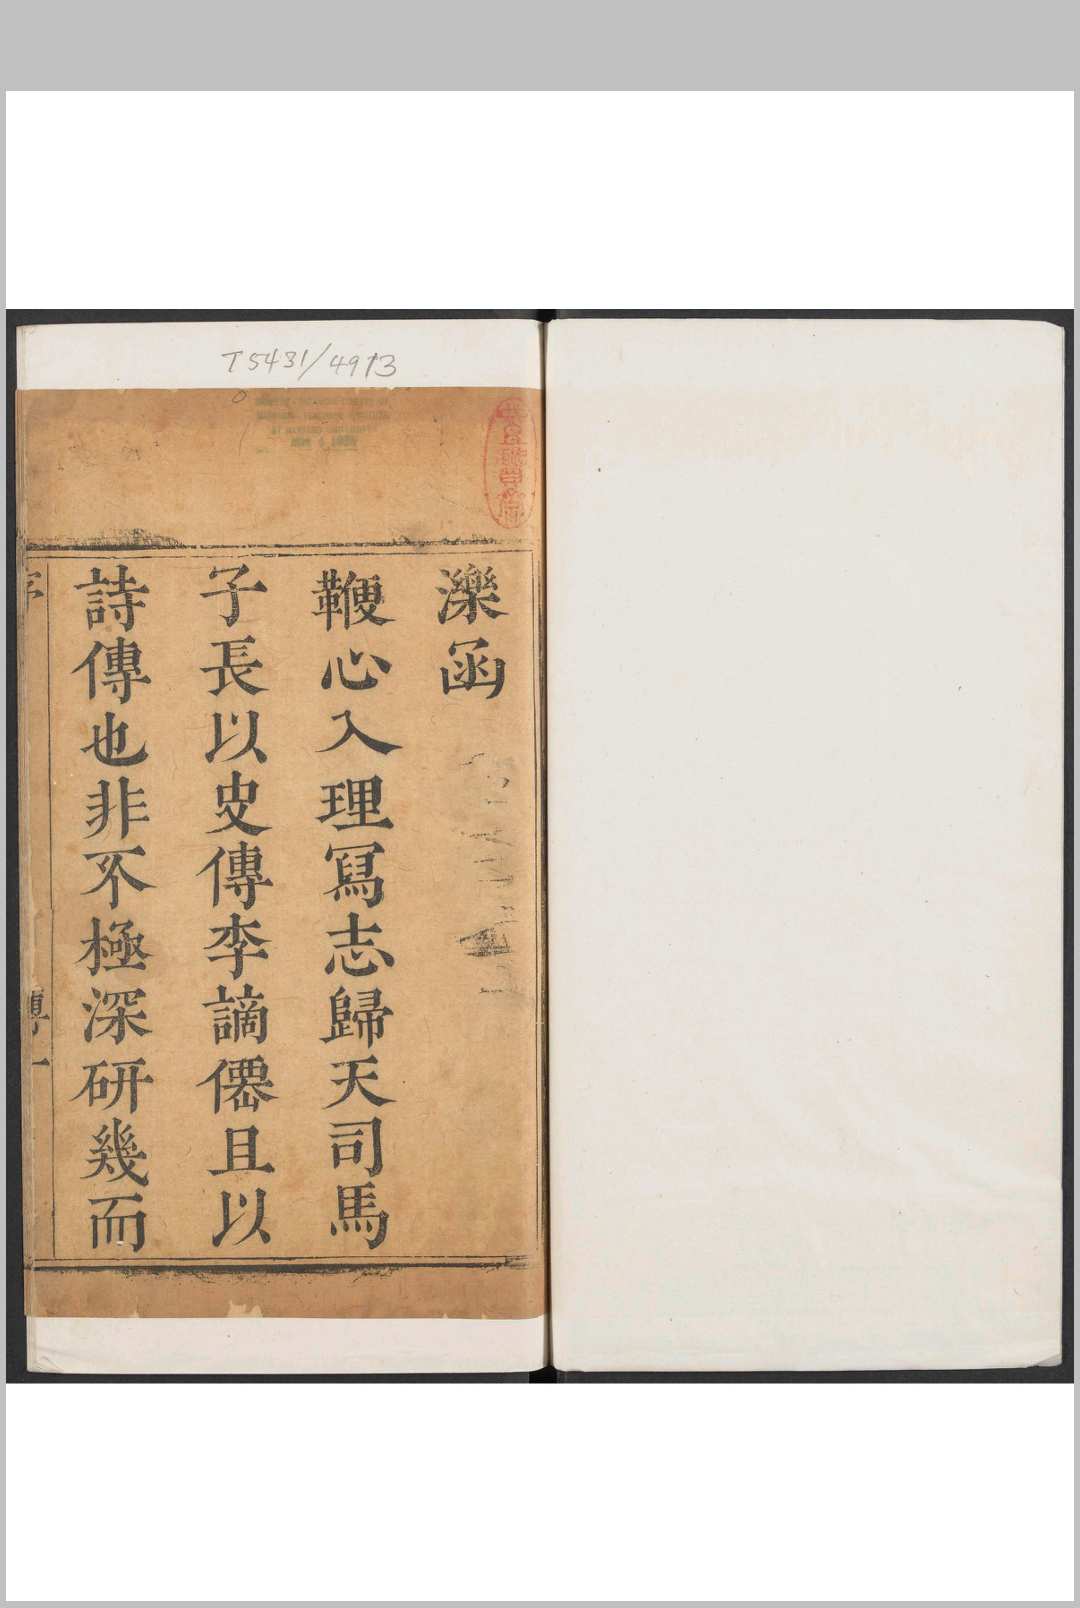 T5431/4913
濼函
鞭心入理冩志歸天司馬
子長以史傳李謫僊且以
詩傳也非不極深研幾而